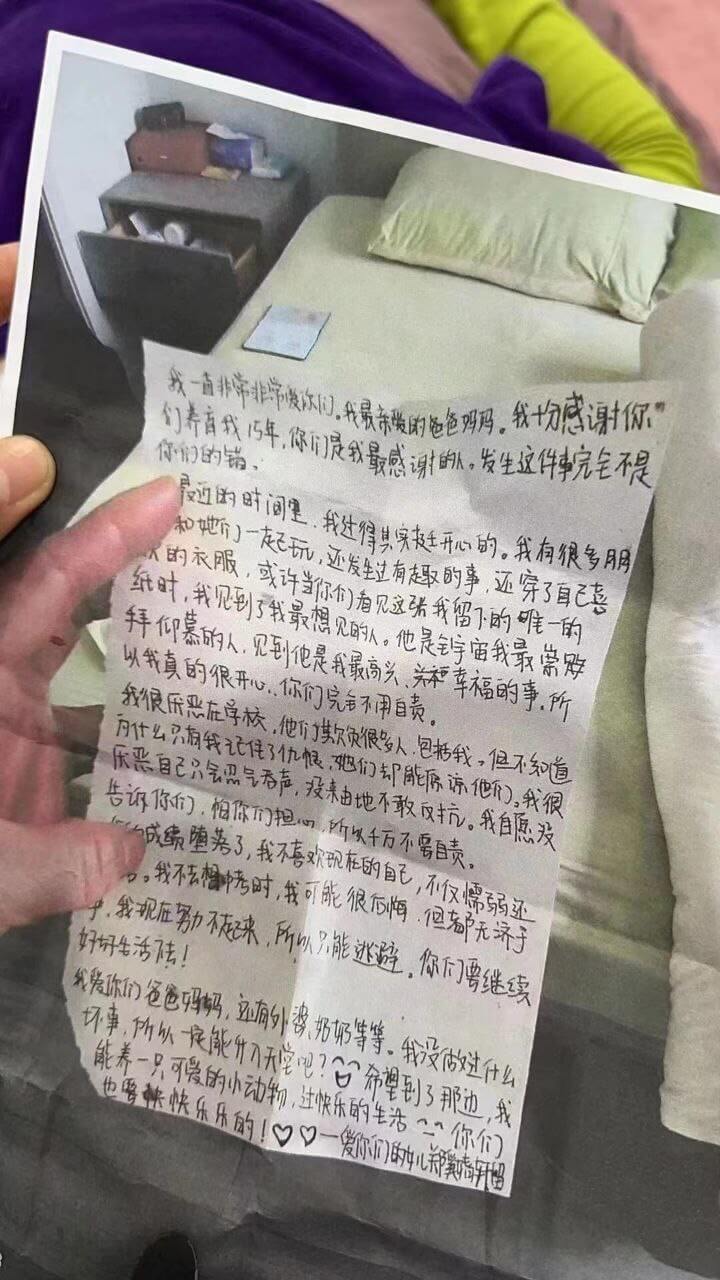 我一直非常非常爱你们。我最亲爱的爸爸妈妈。我十分感谢你
们养育我15年,你们是我最感谢的人。发生这件事完全不是
你们的错。
最近的时间里,我过得其实挺开心的。我有很多朋
和她们一起玩,还发生过有趣的事,还穿了自己喜
的衣服,或许当你们看见这张我留下的唯一的
纸时,我见到了我最想见的人。他是全宇宙我最崇
拜仰慕的人,见到他是我最高兴、幸福的事,所
以我真的很开心,你们完全不用自责。
我很厌恶在学校,他们欺负很多人,包括我。但不知道
为什么只有我记住了仇恨,她们却能原谅他们。我很
厌恶自己只会忍气吞声,没来由地不敢反抗。我自愿没
告诉你们,怕你们担心,所以千万不要自责。
成绩堕落了,我不喜欢现在的自己,不仅懦弱还
。我不去想中考时,我可能很后悔,但都无济于
事,我现在努力不起来,所以只能逃避。你们要继续
好好生活下去!
我爱你们爸爸妈妈,还有外婆、奶奶等等。我没做过什么
坏事,所以一定能升入天堂吧?希望到了那边,我
能养一只可爱的小动物,过快乐的生活 你们
也要快快乐乐的!♡♡—爱你们的女儿郑